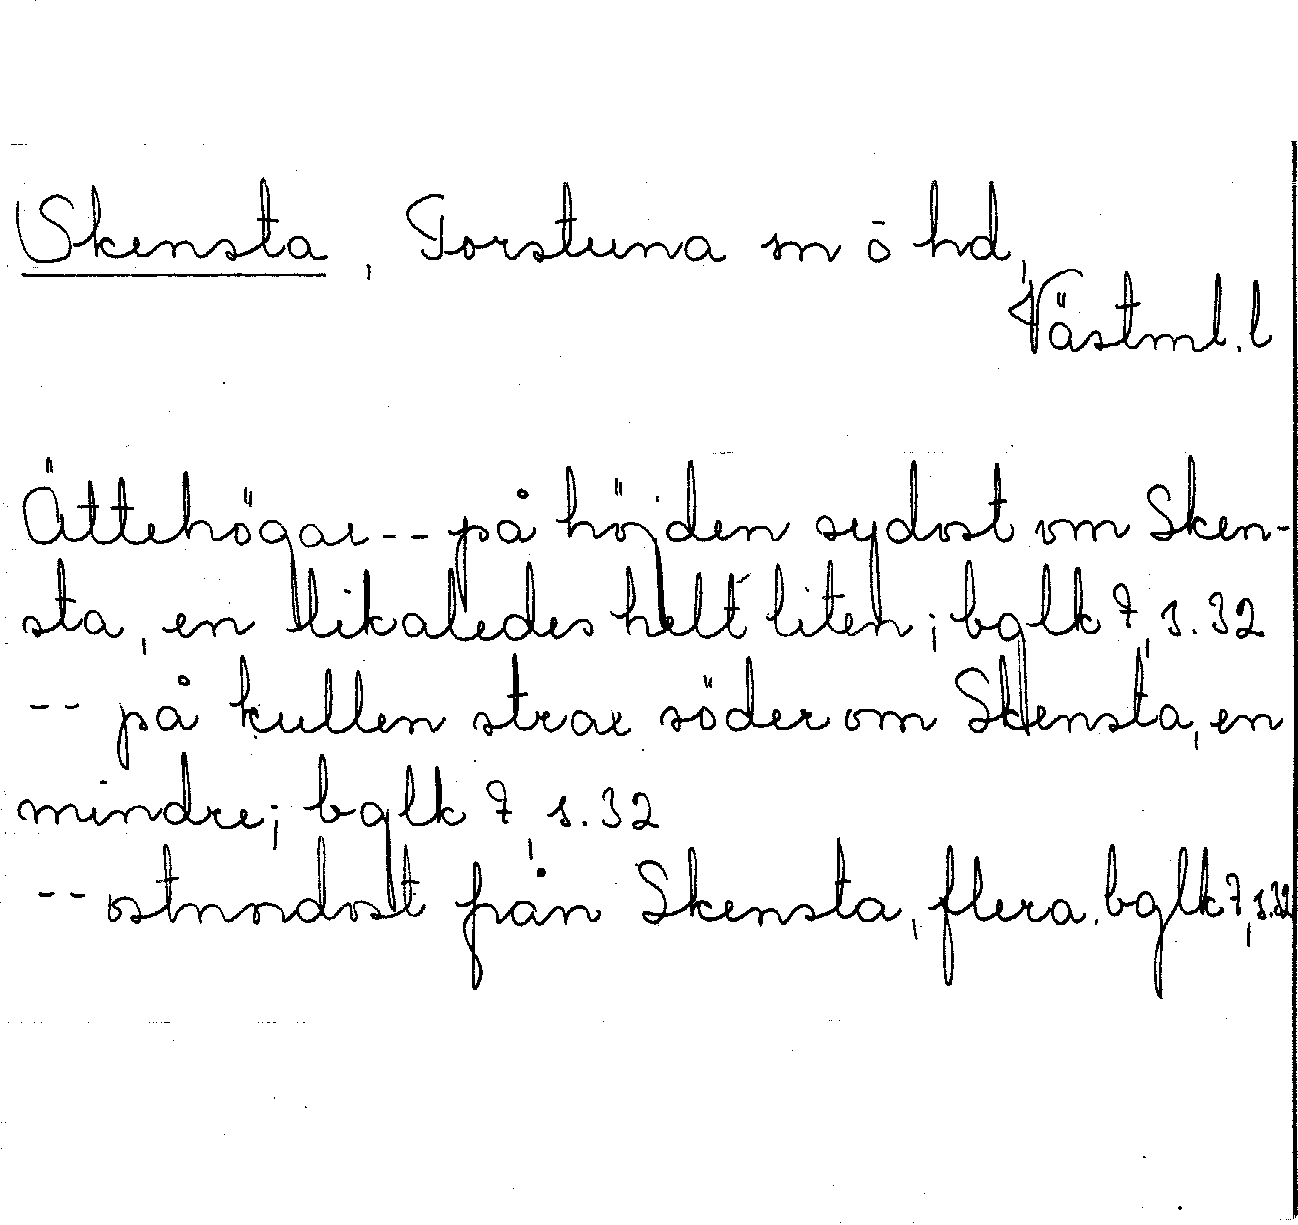 Skensta, Torstuna sn o hd,
Västml.l
Ättehögar -- på höjden sydost om Sken-
sta, en likaledes helt liten; bglk 7, s. 32
-- på kullen strax söder om Skensta, en
mindre; bglk 7, s. 32
-- ostnordost från Skensta, flera. bglk 7, s. 32